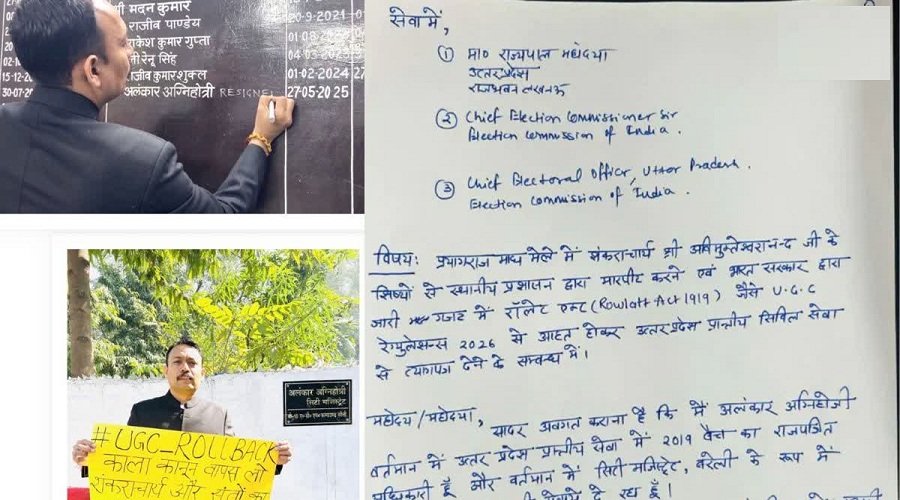 श्री मदन कुमार
राजीव पाण्डेय
20-9-2021
राकेश कुमार गुप्ता
01-08-
रेनू सिंह
04-03-
15-12-
राजीव कुमार शुक्ल
01-02-2024
30-07-
अलंकार अग्निहोत्री RESIGNE
27-05-2025
अलंकार अग्निहोत्री
सिटी मजिस्ट्रेट
#UGC_ROLLBACK
काला कानून वापस लो
शंकराचार्य और संतों का
सेवा में,
① मा० राज्यपाल महोदया
उत्तर प्रदेश
राजभवन लखनऊ
② Chief Election Commissioner Sir
Election Commission of India.
③ Chief Electoral Officer, Uttar Pradesh.
Election Commission of India.
विषय: प्रयागराज माघ मेले में शंकराचार्य श्री अविमुक्तेश्वरानन्द जी के
शिष्यों से स्थानीय प्रशासन द्वारा मारपीट करने एवं भारत सरकार द्वारा
जारी गजट में रॉलेट एक्ट (Rowlatt Act 1919) जैसे U.G.C
रेगुलेसन्स 2026 से आहत होकर उत्तर प्रदेश प्रान्तीय सिविल सेवा
से त्यागपत्र देने के सम्बन्ध में।
महोदय/महोदया,
सादर अवगत कराना है कि मैं अलंकार अग्निहोत्री
वर्तमान में उत्तर प्रदेश प्रान्तीय सेवा में 2019 बैच का राजपत्रित
अधिकारी हूँ और वर्तमान में सिटी मजिस्ट्रेट, बरेली के रूप में
दे रहा हूँ।